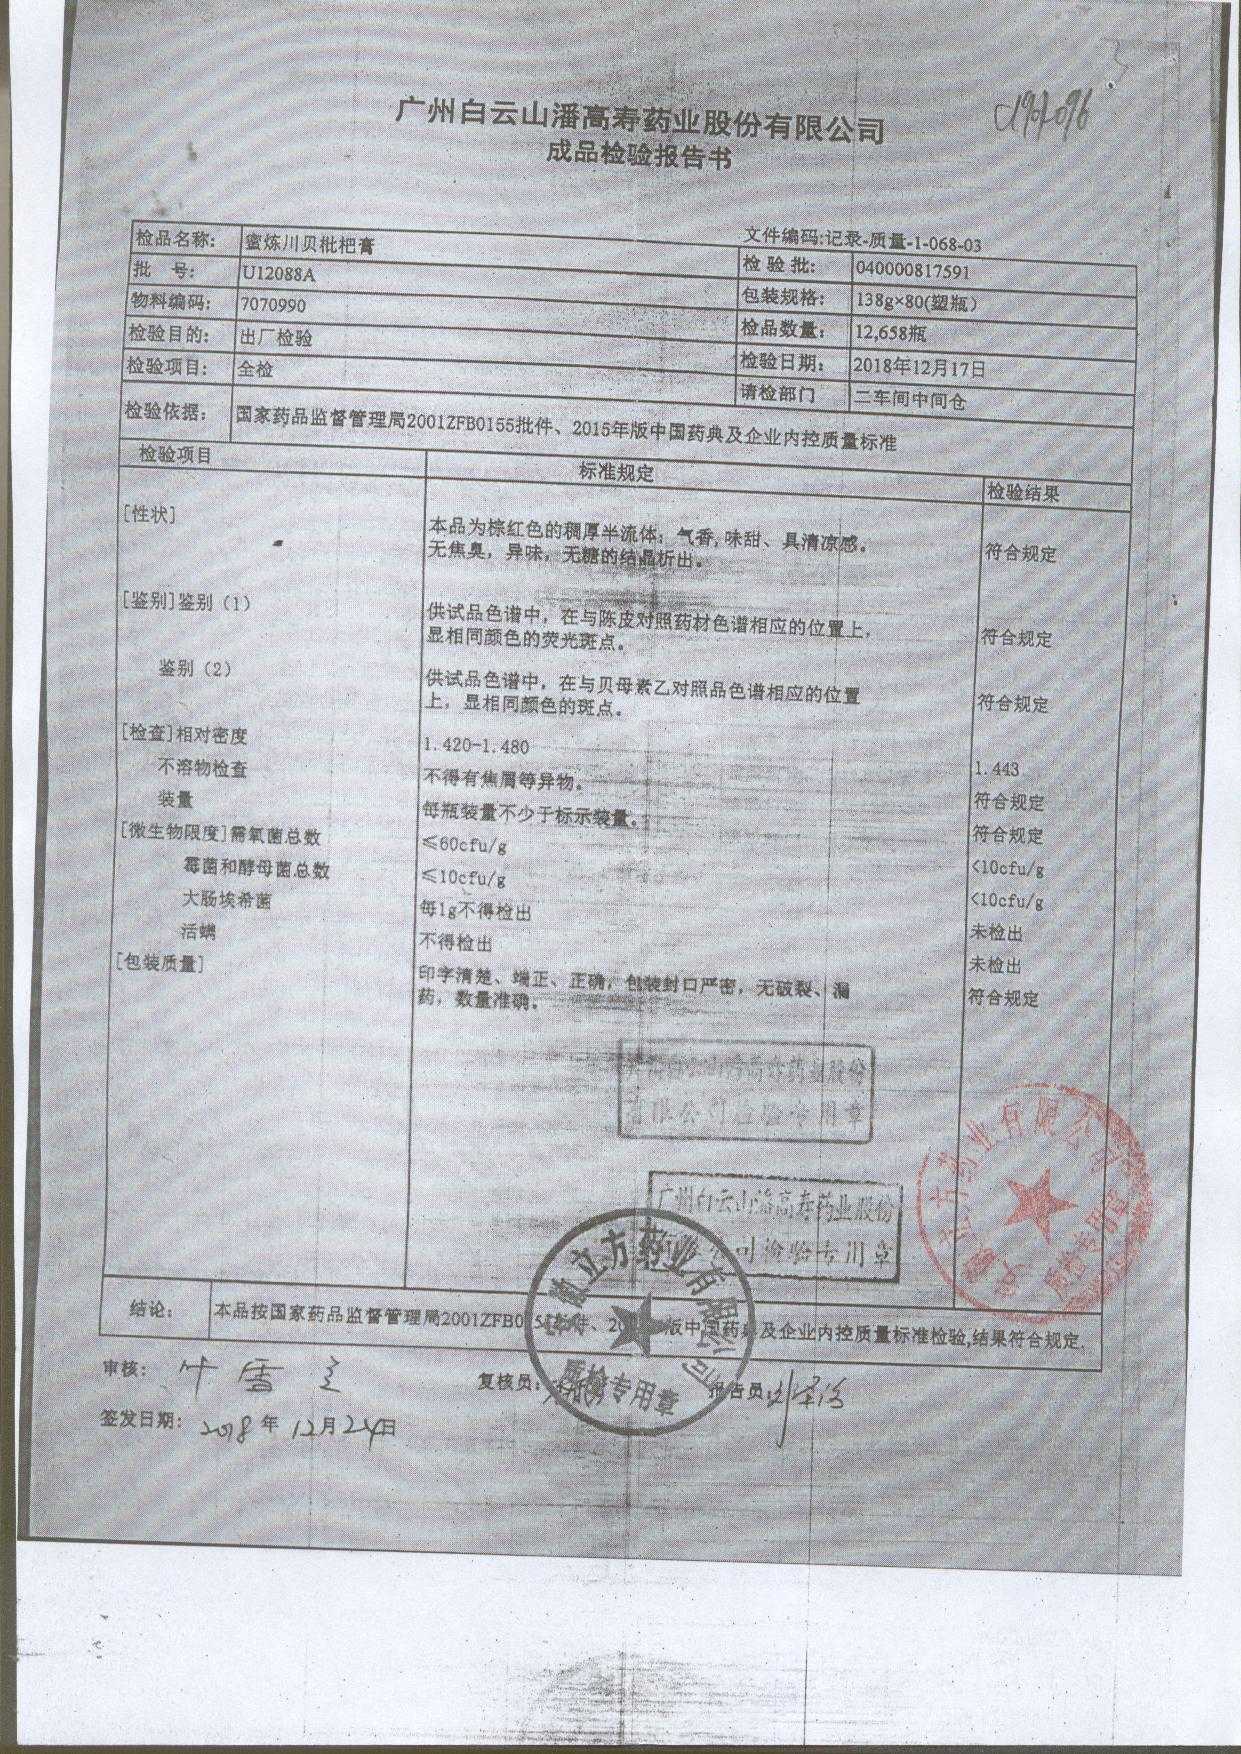 广州白云山潘高寿药业股份有限公司
成品检验报告书
文件编码:记录-质量-1-068-03
检品名称: 蜜炼川贝枇杷膏
检 验 批: 040000817591
批 号: U12088A
包装规格: 138g×80(塑瓶)
物料编码: 7070990
检品数量: 12,658瓶
检验目的: 出厂检验
检验日期: 2018年12月17日
检验项目: 全检
请检部门 二车间中间仓
检验依据: 国家药品监督管理局2001ZFB0155批件、2015年版中国药典及企业内控质量标准
检验项目 标准规定 检验结果
[性状] 本品为棕红色的稠厚半流体；气香,味甜、具清凉感。
无焦臭，异味，无糖的结晶析出。 符合规定
[鉴别]鉴别（1） 供试品色谱中，在与陈皮对照药材色谱相应的位置上，
显相同颜色的荧光斑点。 符合规定
鉴别（2） 供试品色谱中，在与贝母素乙对照品色谱相应的位置
上，显相同颜色的斑点。 符合规定
[检查]相对密度 1.420-1.480 1.443
不溶物检查 不得有焦屑等异物。 符合规定
装量 每瓶装量不少于标示装量。 符合规定
[微生物限度]需氧菌总数 ≤60cfu/g <10cfu/g
霉菌和酵母菌总数 ≤10cfu/g <10cfu/g
大肠埃希菌 每1g不得检出 未检出
活螨 不得检出 未检出
[包装质量] 印字清楚、端正、正确，包装封口严密，无破裂、漏
药，数量准确。 符合规定
广州白云山潘高寿药业股份
有限公司检验专用章
广州白云山潘高寿药业股份
有限公司检验专用章
立方药业有限公司
质检专用章
立方药业有限公司
质检专用章
结论: 本品按国家药品监督管理局2001ZFB0155批件、2015年版中国药典及企业内控质量标准检验,结果符合规定.
审核: 复核员: 报告员:
签发日期: 2018年12月24日